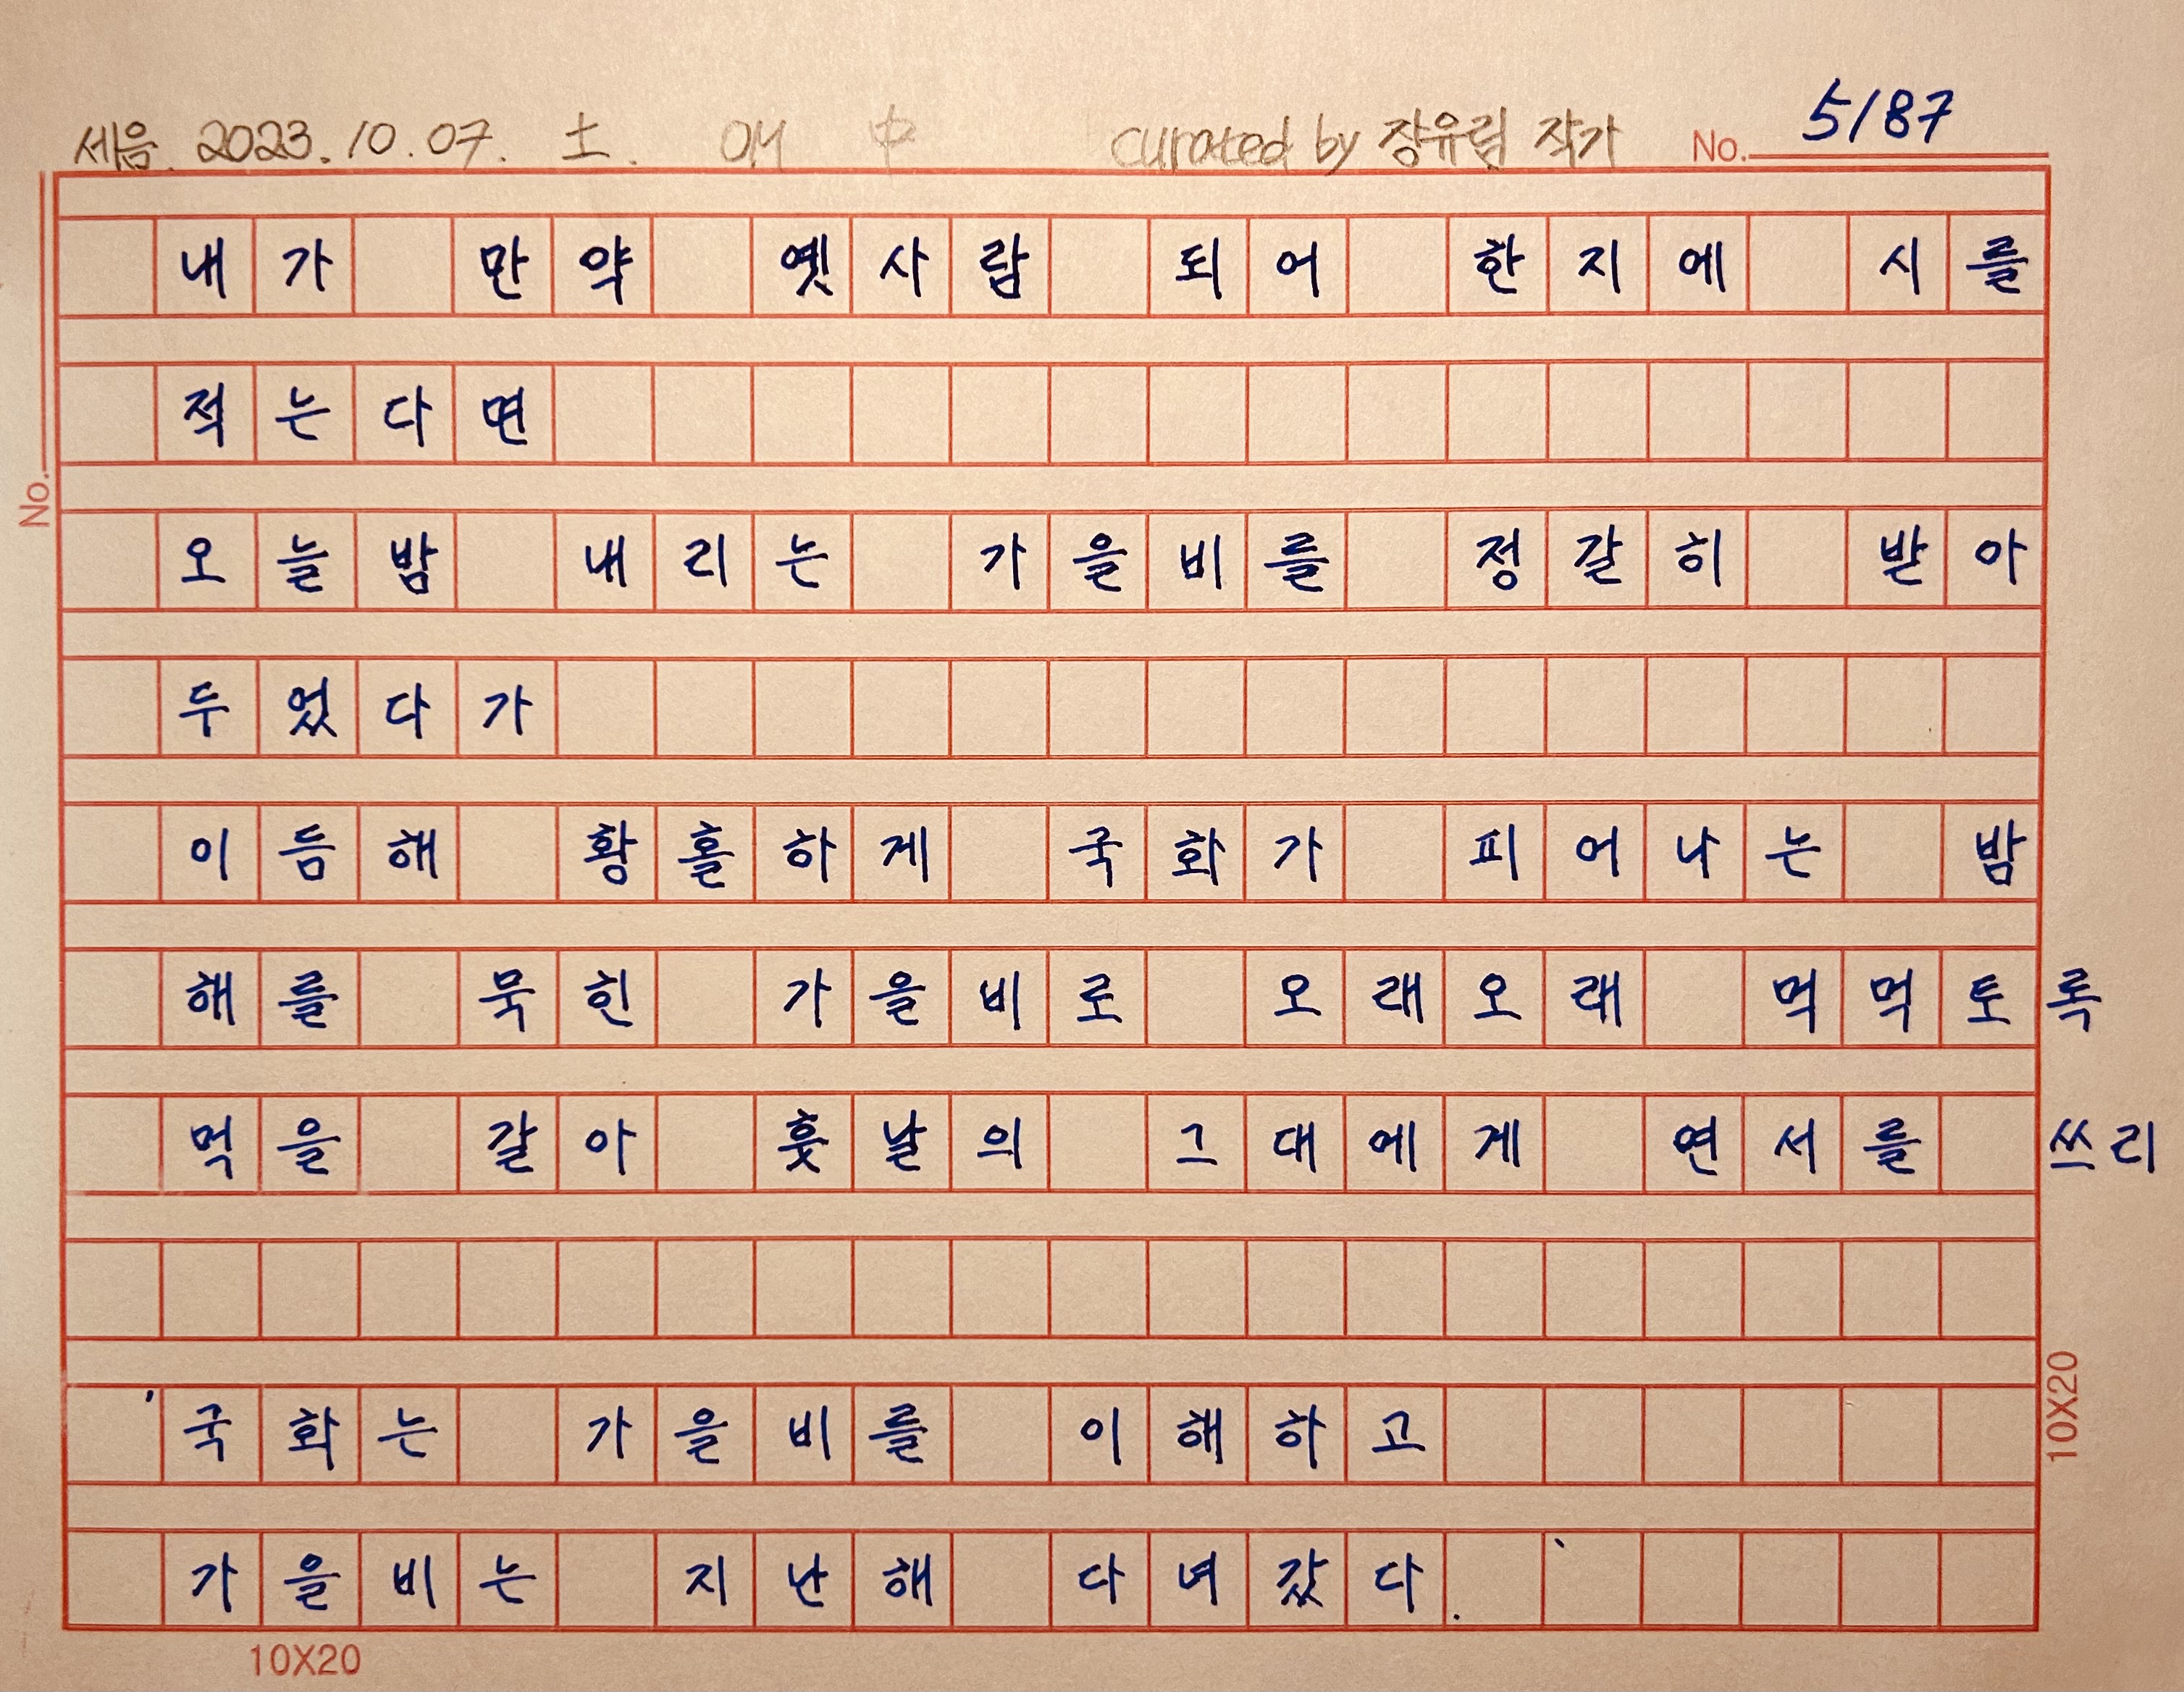 세음. 2023. 10. 07. 土. curated by 장유림 작가 No. 5187
내가 만약 옛사람 되어 한지에 시를
적는다면
No.
오늘밤 내리는 가을비를 정갈히 받아
두었다가
이듬해 황홀하게 국화가 피어나는 밤
해를 묵힌 가을비로 오래오래 먹먹토록
먹을 갈아 훗날의 그대에게 연서를 쓰리
'국화는 가을비를 이해하고
가을비는 지난해 다녀갔다.'
10X20
10X20